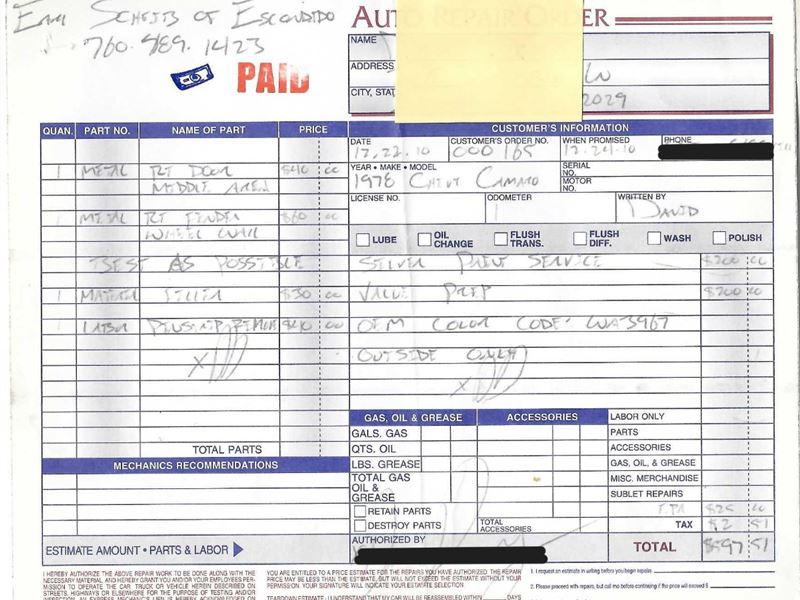 Earl Scheib of Escondido
760.489.1423
PAID
AUTO REPAIR ORDER
NAME
ADDRESS LN
CITY, STAT 2029
QUAN. PART NO. NAME OF PART PRICE
CUSTOMER'S INFORMATION
DATE CUSTOMER'S ORDER NO. WHEN PROMISED PHONE
12.22.10 000165 12.24.10
1 METAL RT DOOR $40 00
MIDDLE AREA
YEAR • MAKE • MODEL SERIAL NO.
1978 CHEVY CAMARO MOTOR NO.
LICENSE NO. ODOMETER WRITTEN BY
DAVID
1 METAL RT FENDER $60 00
WHEEL WELL
LUBE OIL CHANGE FLUSH TRANS. FLUSH DIFF. WASH POLISH
BEST AS POSSIBLE
SILVER PAINT SERVICE $200 00
1 MATERIAL FILLER $30 00
VALUE PREP $200 00
1 LABOR 00
OEM COLOR CODE: WA3967
X
OUTSIDE ONLY
X
GAS, OIL & GREASE ACCESSORIES LABOR ONLY
GALS. GAS PARTS
TOTAL PARTS
QTS. OIL ACCESSORIES
MECHANICS RECOMMENDATIONS
LBS. GREASE GAS, OIL, & GREASE
TOTAL GAS OIL & GREASE MISC. MERCHANDISE
SUBLET REPAIRS
RETAIN PARTS EPA $25 00
DESTROY PARTS TOTAL ACCESSORIES TAX $2 51
ESTIMATE AMOUNT • PARTS & LABOR
AUTHORIZED BY TOTAL $597 51
I HEREBY AUTHORIZE THE ABOVE REPAIR WORK TO BE DONE ALONG WITH THE
NECESSARY MATERIAL, AND HEREBY GRANT YOU AND/OR YOUR EMPLOYEES PER-
MISSION TO OPERATE THE CAR, TRUCK OR VEHICLE HEREIN DESCRIBED ON
STREETS, HIGHWAYS OR ELSEWHERE FOR THE PURPOSE OF TESTING AND/OR
YOU ARE ENTITLED TO A PRICE ESTIMATE FOR THE REPAIRS YOU HAVE AUTHORIZED. THE REPAIR
PRICE MAY BE LESS THAN THE ESTIMATE, BUT WILL NOT EXCEED THE ESTIMATE WITHOUT YOUR
PERMISSION. YOUR SIGNATURE WILL INDICATE YOUR ESTIMATE SELECTION.
TEARDOWN ESTIMATE: I UNDERSTAND THAT MY CAR WILL BE REASSEMBLED WITHIN DAYS
1. I request an estimate in writing before you begin repairs
2. Please proceed with repairs, but call me before continuing if the price will exceed $